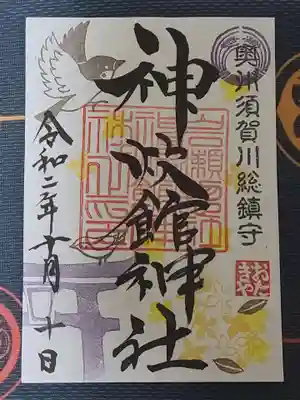 奥州須賀川総鎮守
神炊館神社
令和二年十月十日